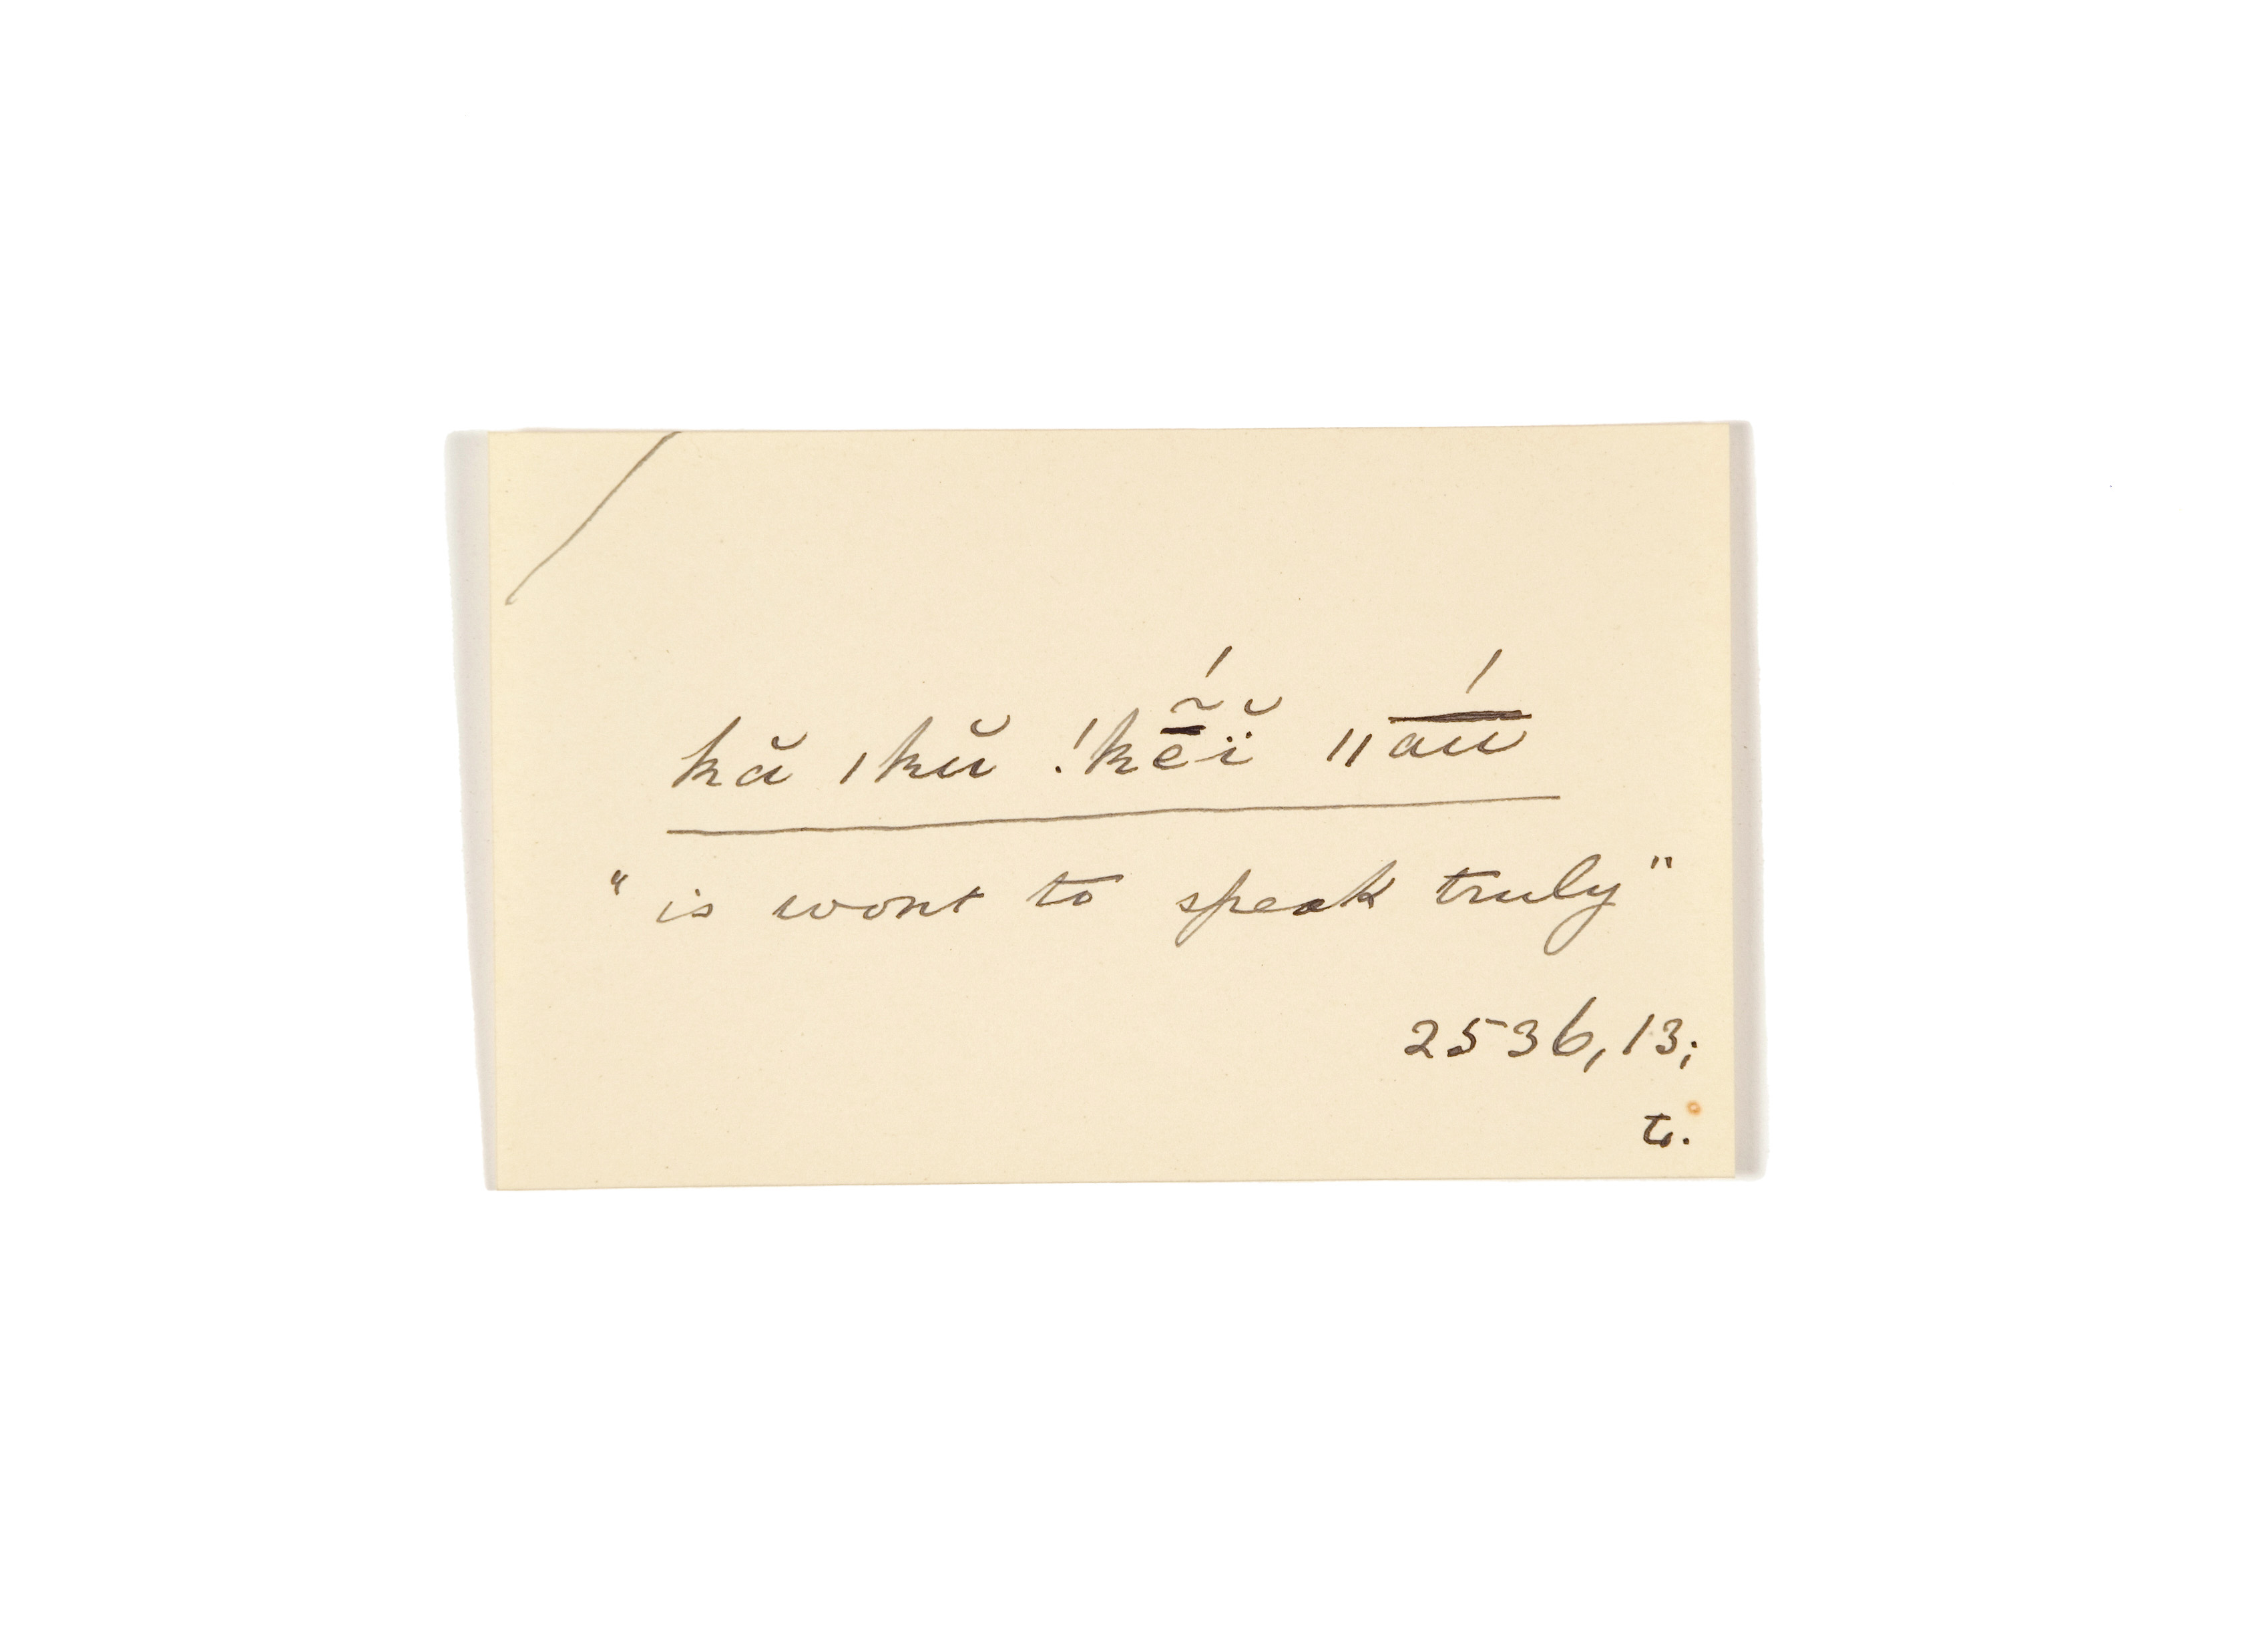 kă |kŭ !kḗ̃ĭ ǁa͞ú
"is wont to speak truly"
2536, 13;
t.